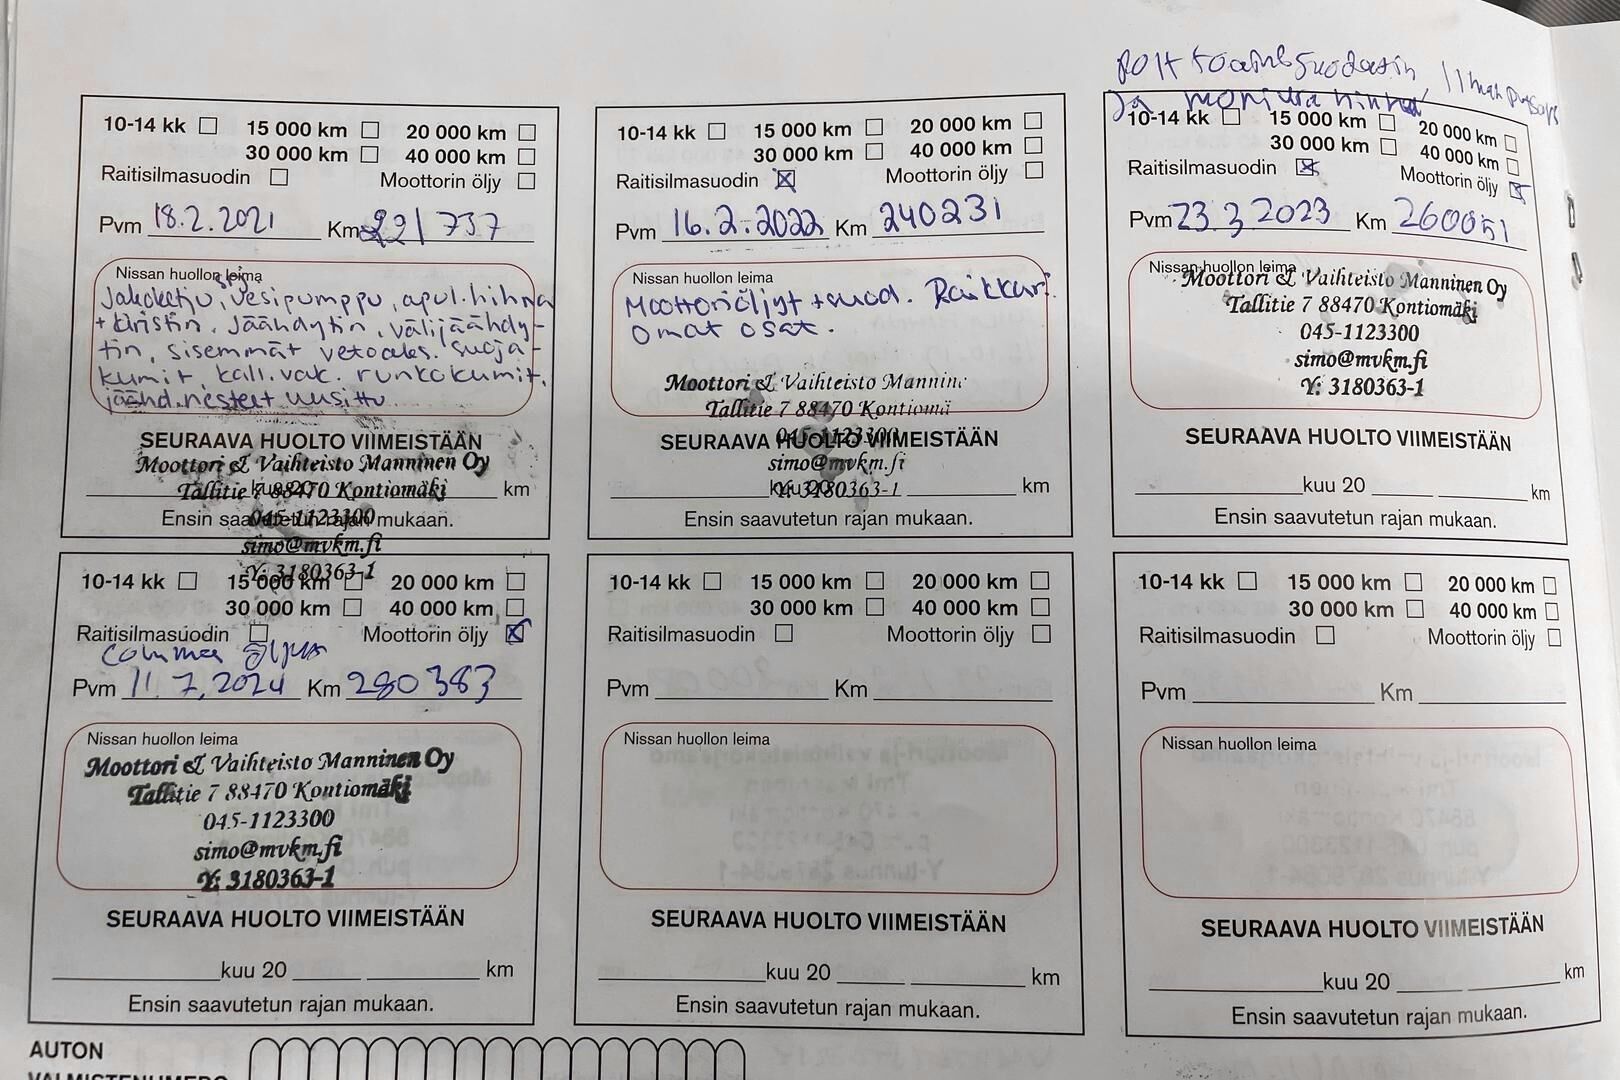 polttoainesuodatin,
ja moniurahihna
10-14 kk 15 000 km 20 000 km
30 000 km 40 000 km
Raitisilmasuodin Moottorin öljy
Pvm 18.2.2021 Km 221 737
Nissan huollon leima
Jakoketju, vesipumppu, apul.hihna
+ kiristin, jäähdytin, välijäähdy-
tin, sisemmät vetoaks. suoja-
kumit, kall.vak. runkokumit,
jäähd.nesteet uusittu.
SEURAAVA HUOLTO VIIMEISTÄÄN
Moottori & Vaihteisto Manninen Oy
Tallitie 7 88470 Kontiomäki
kuu 20 km
045-1123300
Ensin saavutetun rajan mukaan.
simo@mvkm.fi
Y: 3180363-1
10-14 kk 15 000 km 20 000 km
30 000 km 40 000 km
Raitisilmasuodin Moottorin öljy
Pvm 16.2.2022 Km 240231
Nissan huollon leima
Moottoriöljyt + suod.
omat osat.
Moottori & Vaihteisto Mannin
Tallitie 7 88470 Kontiomä
045-1123300
SEURAAVA HUOLTO VIIMEISTÄÄN
simo@mvkm.fi
kuu 20 km
Y: 3180363-1
Ensin saavutetun rajan mukaan.
10-14 kk 15 000 km 20 000 km
30 000 km 40 000 km
Raitisilmasuodin Moottorin öljy
Pvm 23.3.2023 Km 260051
Nissan huollon leima
Moottori & Vaihteisto Manninen Oy
Tallitie 7 88470 Kontiomäki
045-1123300
simo@mvkm.fi
Y: 3180363-1
SEURAAVA HUOLTO VIIMEISTÄÄN
kuu 20 km
Ensin saavutetun rajan mukaan.
10-14 kk 15 000 km 20 000 km
30 000 km 40 000 km
Raitisilmasuodin Moottorin öljy
Comma
Pvm 11.7.2024 Km 280383
Nissan huollon leima
Moottori & Vaihteisto Manninen Oy
Tallitie 7 88470 Kontiomäki
045-1123300
simo@mvkm.fi
Y: 3180363-1
SEURAAVA HUOLTO VIIMEISTÄÄN
kuu 20 km
Ensin saavutetun rajan mukaan.
10-14 kk 15 000 km 20 000 km
30 000 km 40 000 km
Raitisilmasuodin Moottorin öljy
Pvm Km
Nissan huollon leima
SEURAAVA HUOLTO VIIMEISTÄÄN
kuu 20 km
Ensin saavutetun rajan mukaan.
10-14 kk 15 000 km 20 000 km
30 000 km 40 000 km
Raitisilmasuodin Moottorin öljy
Pvm Km
Nissan huollon leima
SEURAAVA HUOLTO VIIMEISTÄÄN
kuu 20 km
Ensin saavutetun rajan mukaan.
AUTON
VALMISTENUMERO